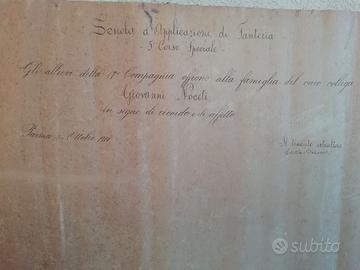 Scuola d'Applicazione di Fanteria
- 5° Corso Speciale -
Gli allievi della 1ª Compagnia offrono alla famiglia del caro collega
Giovanni Noceti
in segno di ricordo e di affetto
Parma, Ottobre
Il tenente istruttore
subito.it